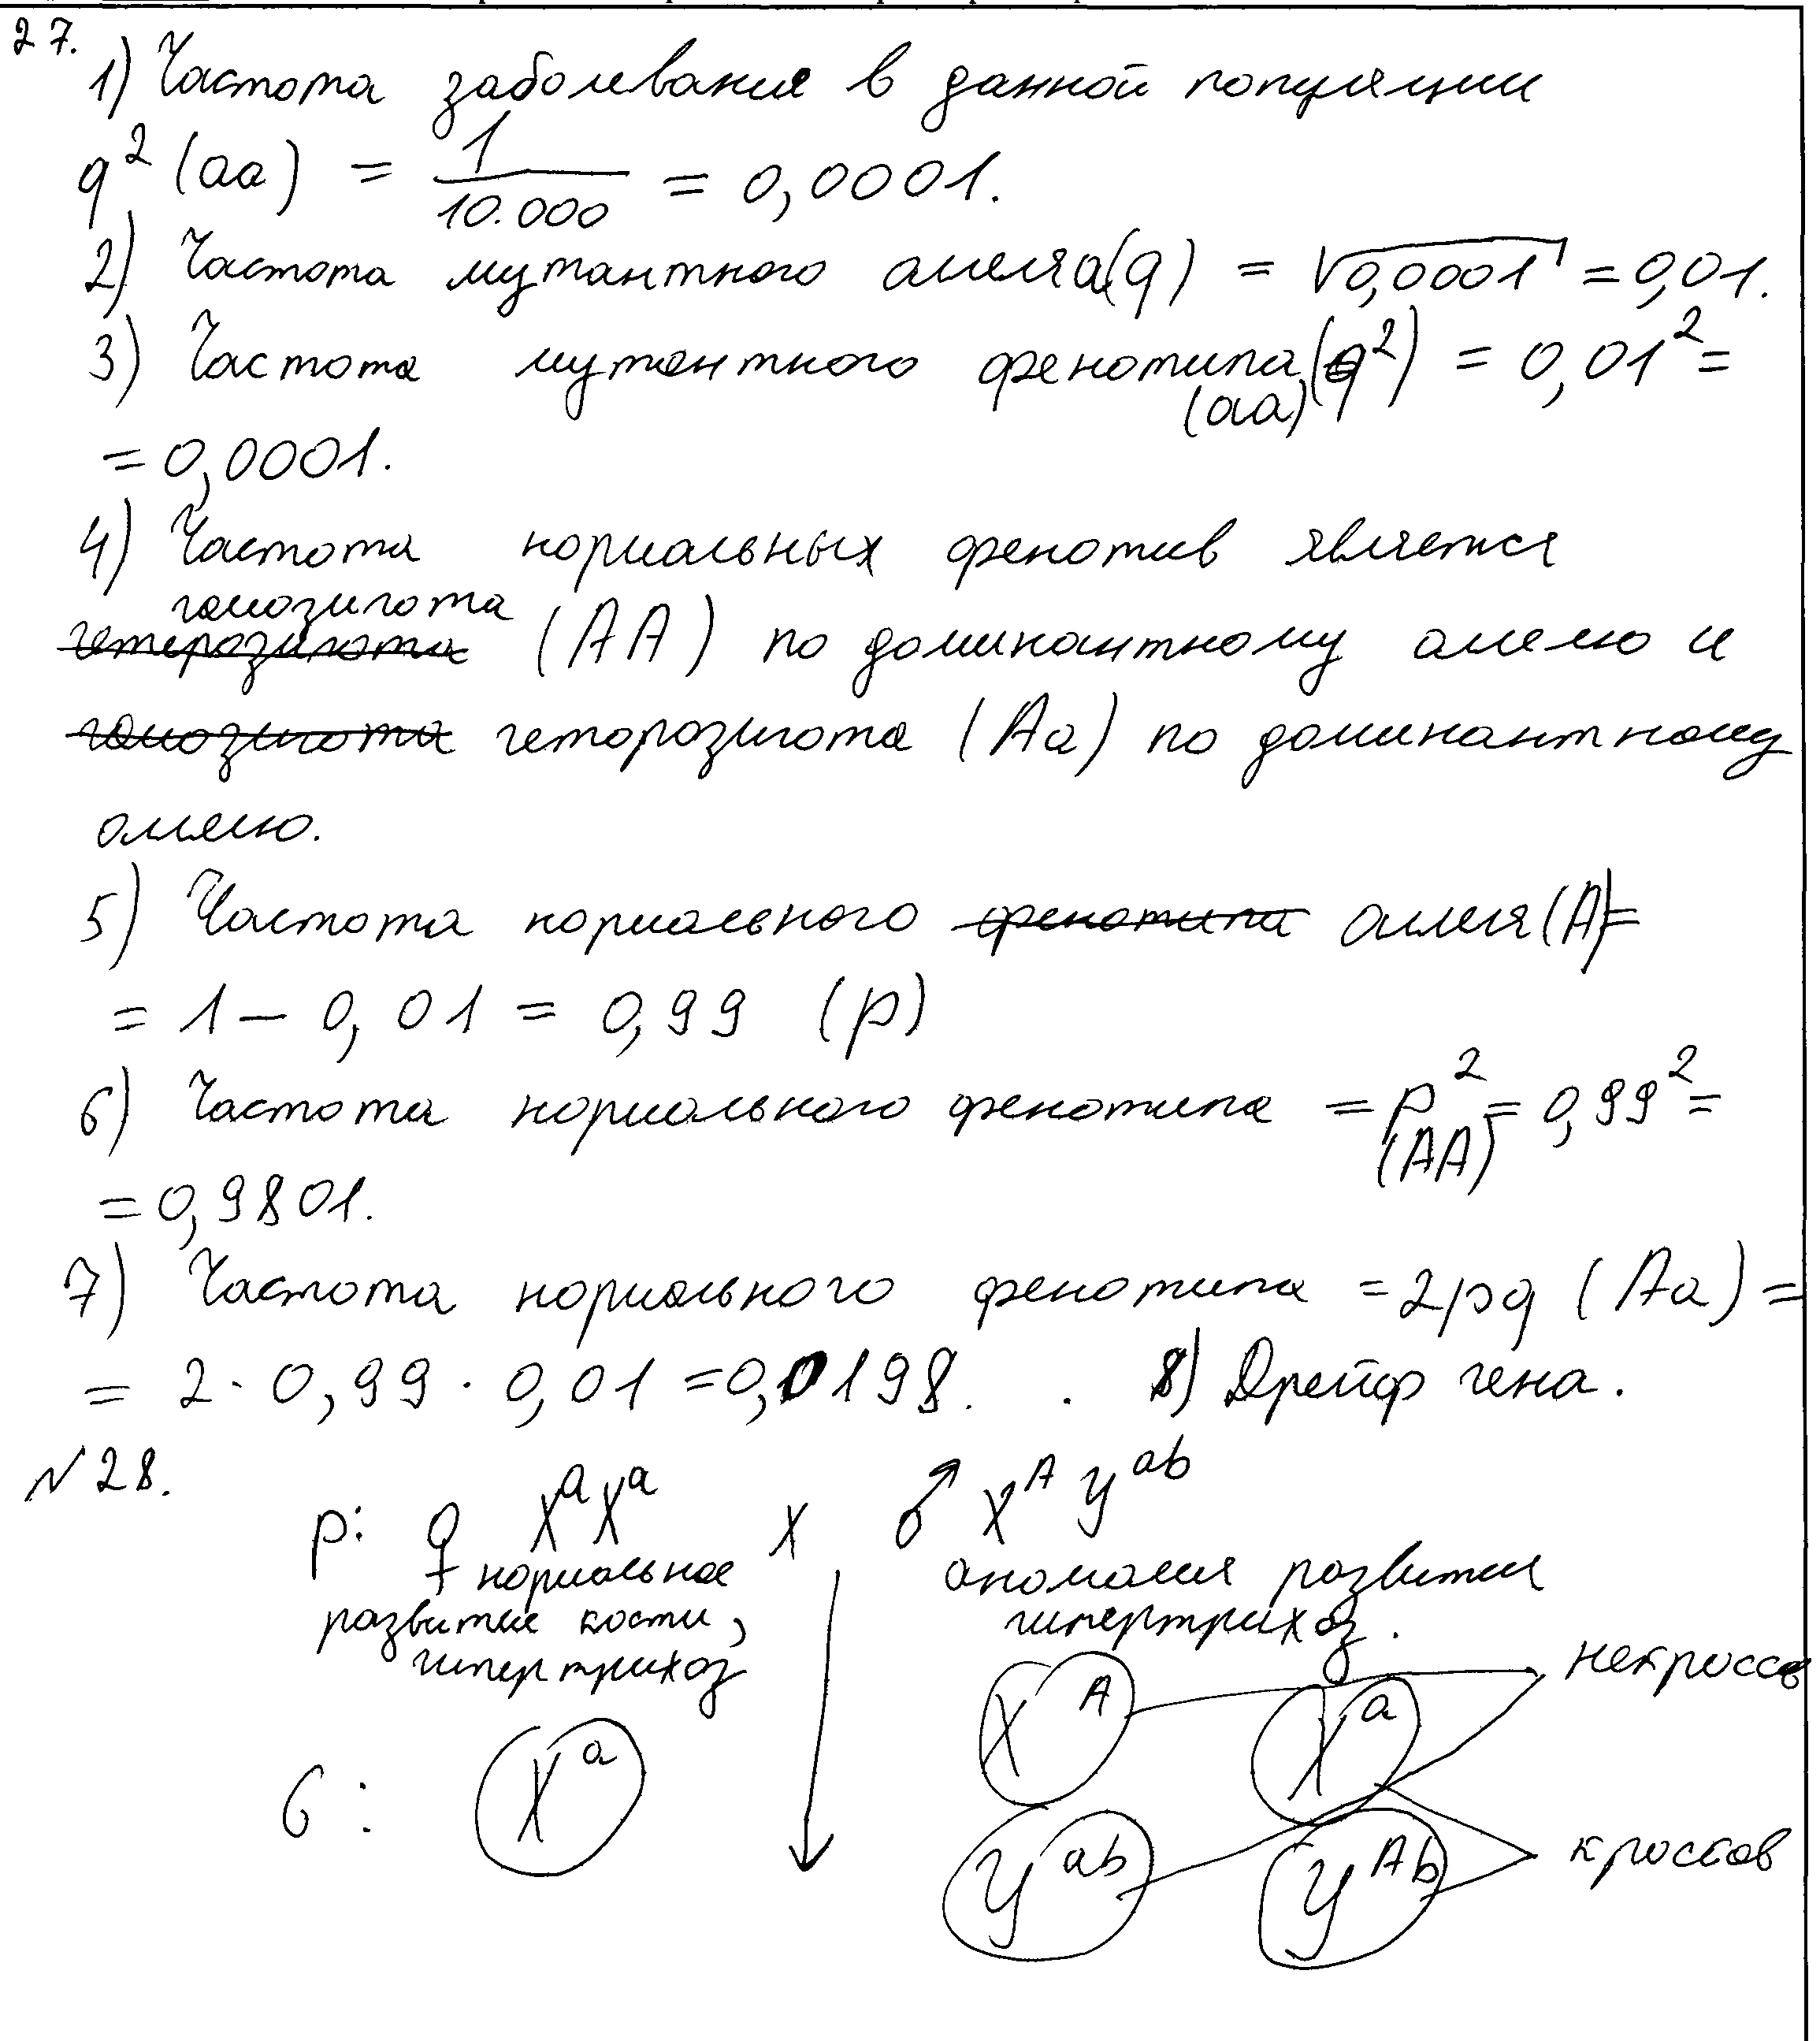 27.
1) Частота заболевания в данной популяции
q² (aa) = 1/10.000 = 0,0001.
2) Частота мутантного аллеля a(q) = √0,0001 = 0,01.
3) Частота мутантного фенотипа (aa) (q²) = 0,01² =
= 0,0001.
4) Частота нормальных фенотив является
гомозигота
гетерозигота (AA) по доминантному аллелю и
гомозигота геторозигота (Aa) по доминантному
аллелю.
5) Частота нормального фенотипа аллеля (A) =
= 1 – 0,01 = 0,99 (p)
6) Частота нормального фенотипа = p² (AA) = 0,99² =
= 0,9801.
7) Частота нормального фенотипа = 2pq (Aa) =
= 2 · 0,99 · 0,01 = 0,0198. . 8) Дрейф гена.
№28.
P: ♀ XᵃXᵃ x ♂ Xᴬ Yᵃᵇ
нормальное аномалия развития
развитие кости, гипертрихоз.
гипертрихоз
некроссов
Xᴬ Xᵃ
G: Xᵃ
Yᵃᵇ Yᴬᵇ кроссов